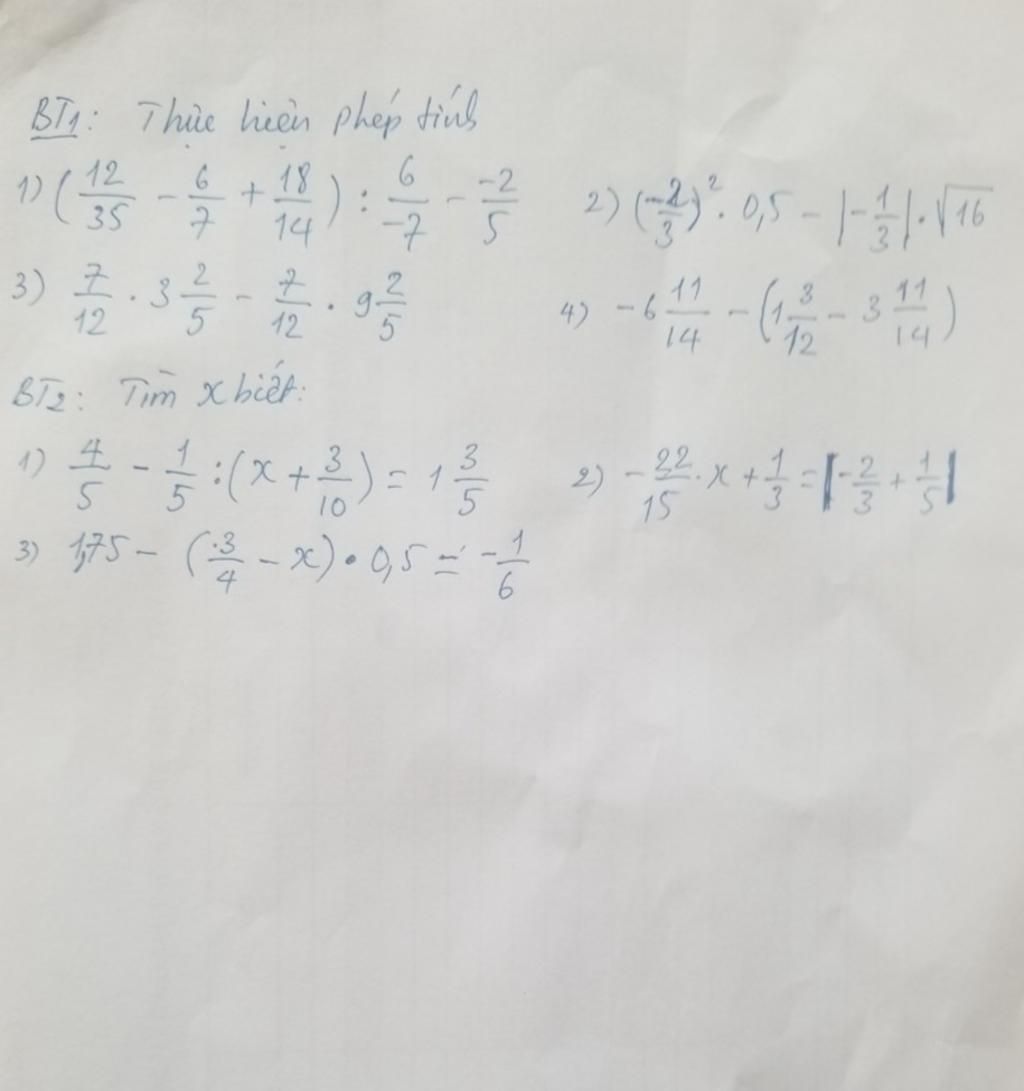 BT1: Thực hiện phép tính
1) (12/35 - 6/7 + 18/14) : 6/-7 - -2/5 2) (-2/3)² . 0,5 - |-1/3| . √16
3) 7/12 . 3 2/5 - 7/12 . 9 2/5 4) -6 11/14 - (1 3/12 - 3 11/14)
BT2: Tìm x biết:
1) 4/5 - 1/5 : (x + 3/10) = 1 3/5 2) -22/15 . x + 1/3 = |-2/3 + 1/5|
3) 1,75 - (3/4 - x) . 0,5 = -1/6